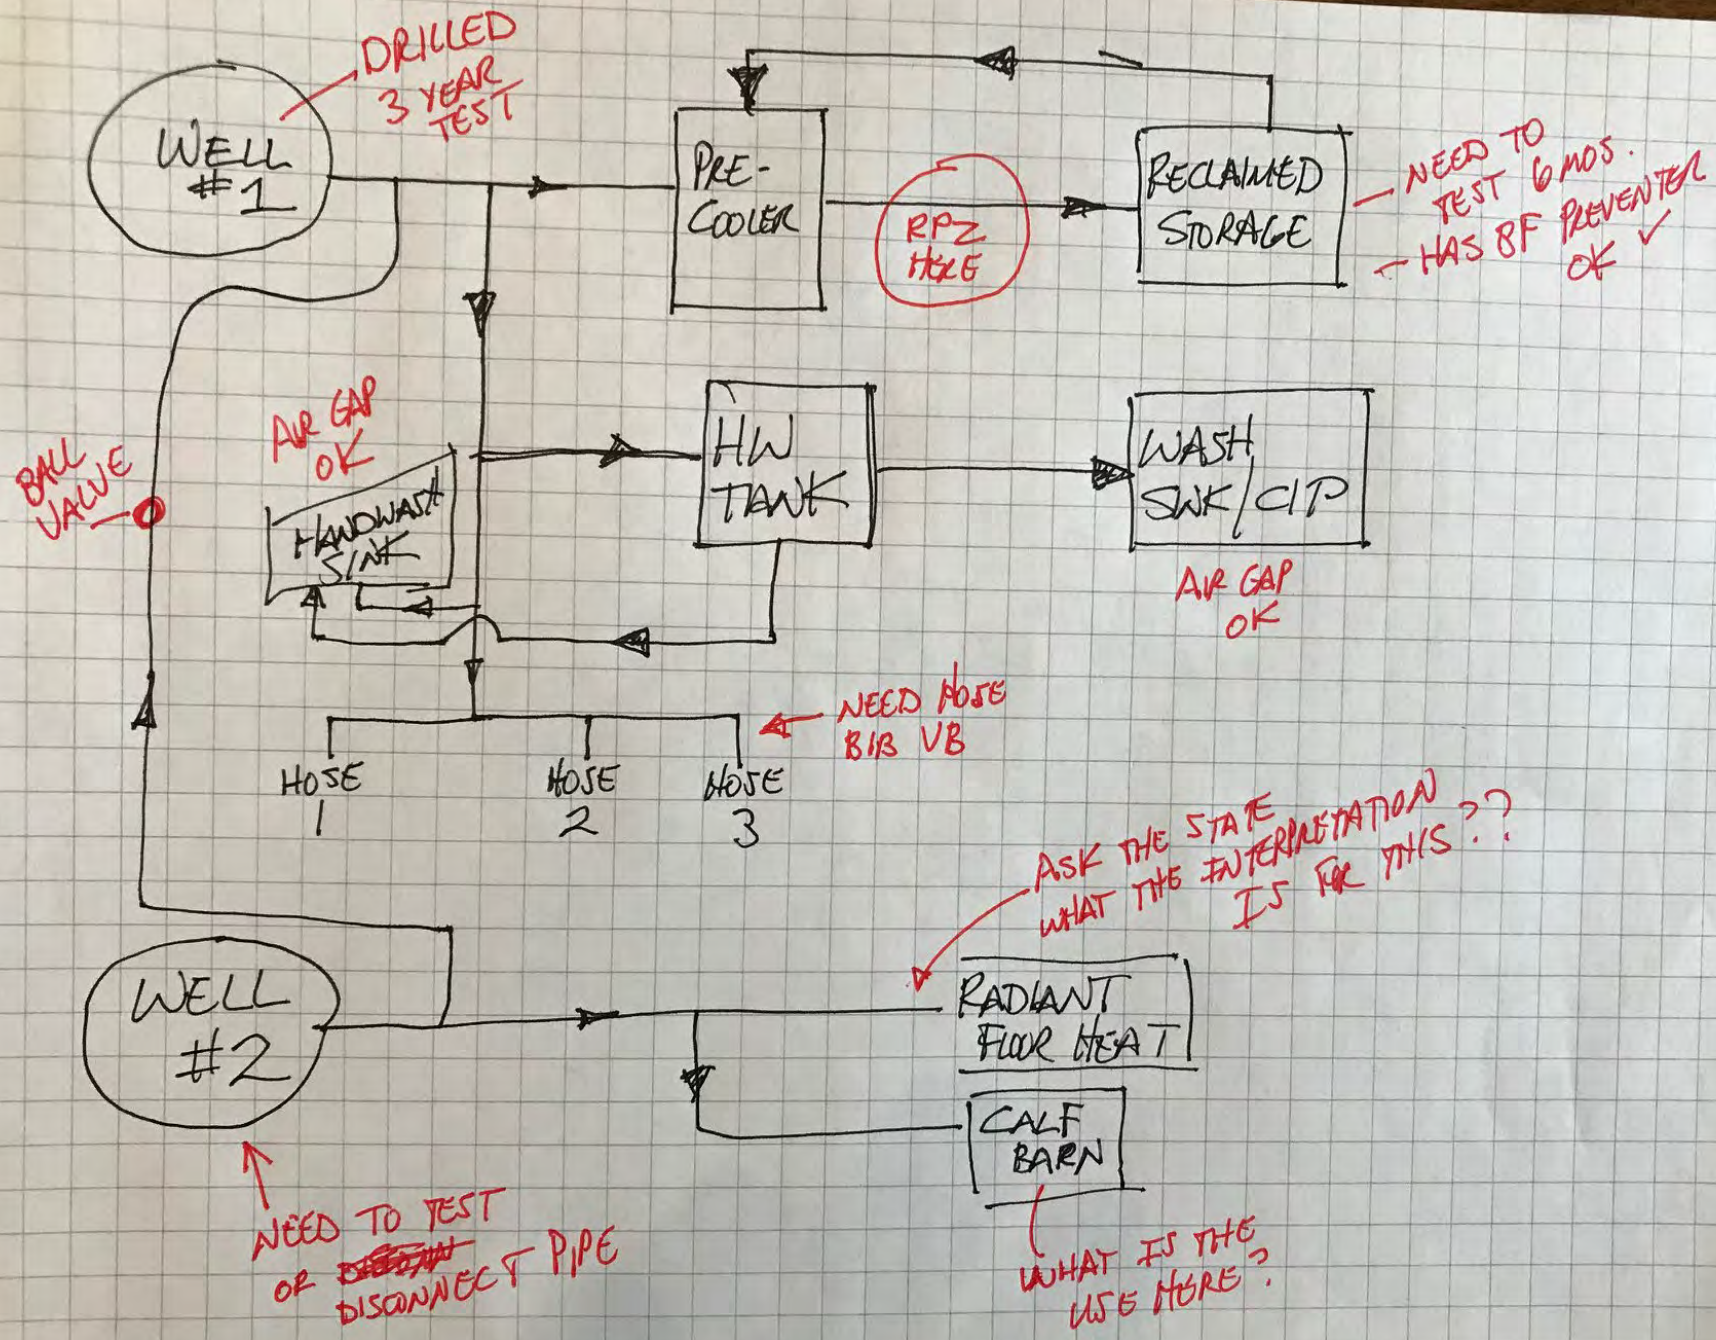 DRILLED
3 YEAR
TEST
WELL
#1
PRE-
COOLER
RPZ
HERE
RECLAIMED
STORAGE
- NEED TO
TEST 6 MOS.
- HAS BF PREVENTER
OK ✓
AIR GAP
OK
BALL
VALVE
HANDWASH
SINK
HW
TANK
WASH
SINK/CIP
AIR GAP
OK
NEED HOSE
BIB VB
HOSE
1
HOSE
2
HOSE
3
ASK THE STATE
WHAT THE INTERPRETATION
IS FOR THIS??
WELL
#2
RADIANT
FLOOR HEAT
CALF
BARN
NEED TO TEST
OR
DISCONNECT PIPE
WHAT IS THE
USE HERE?